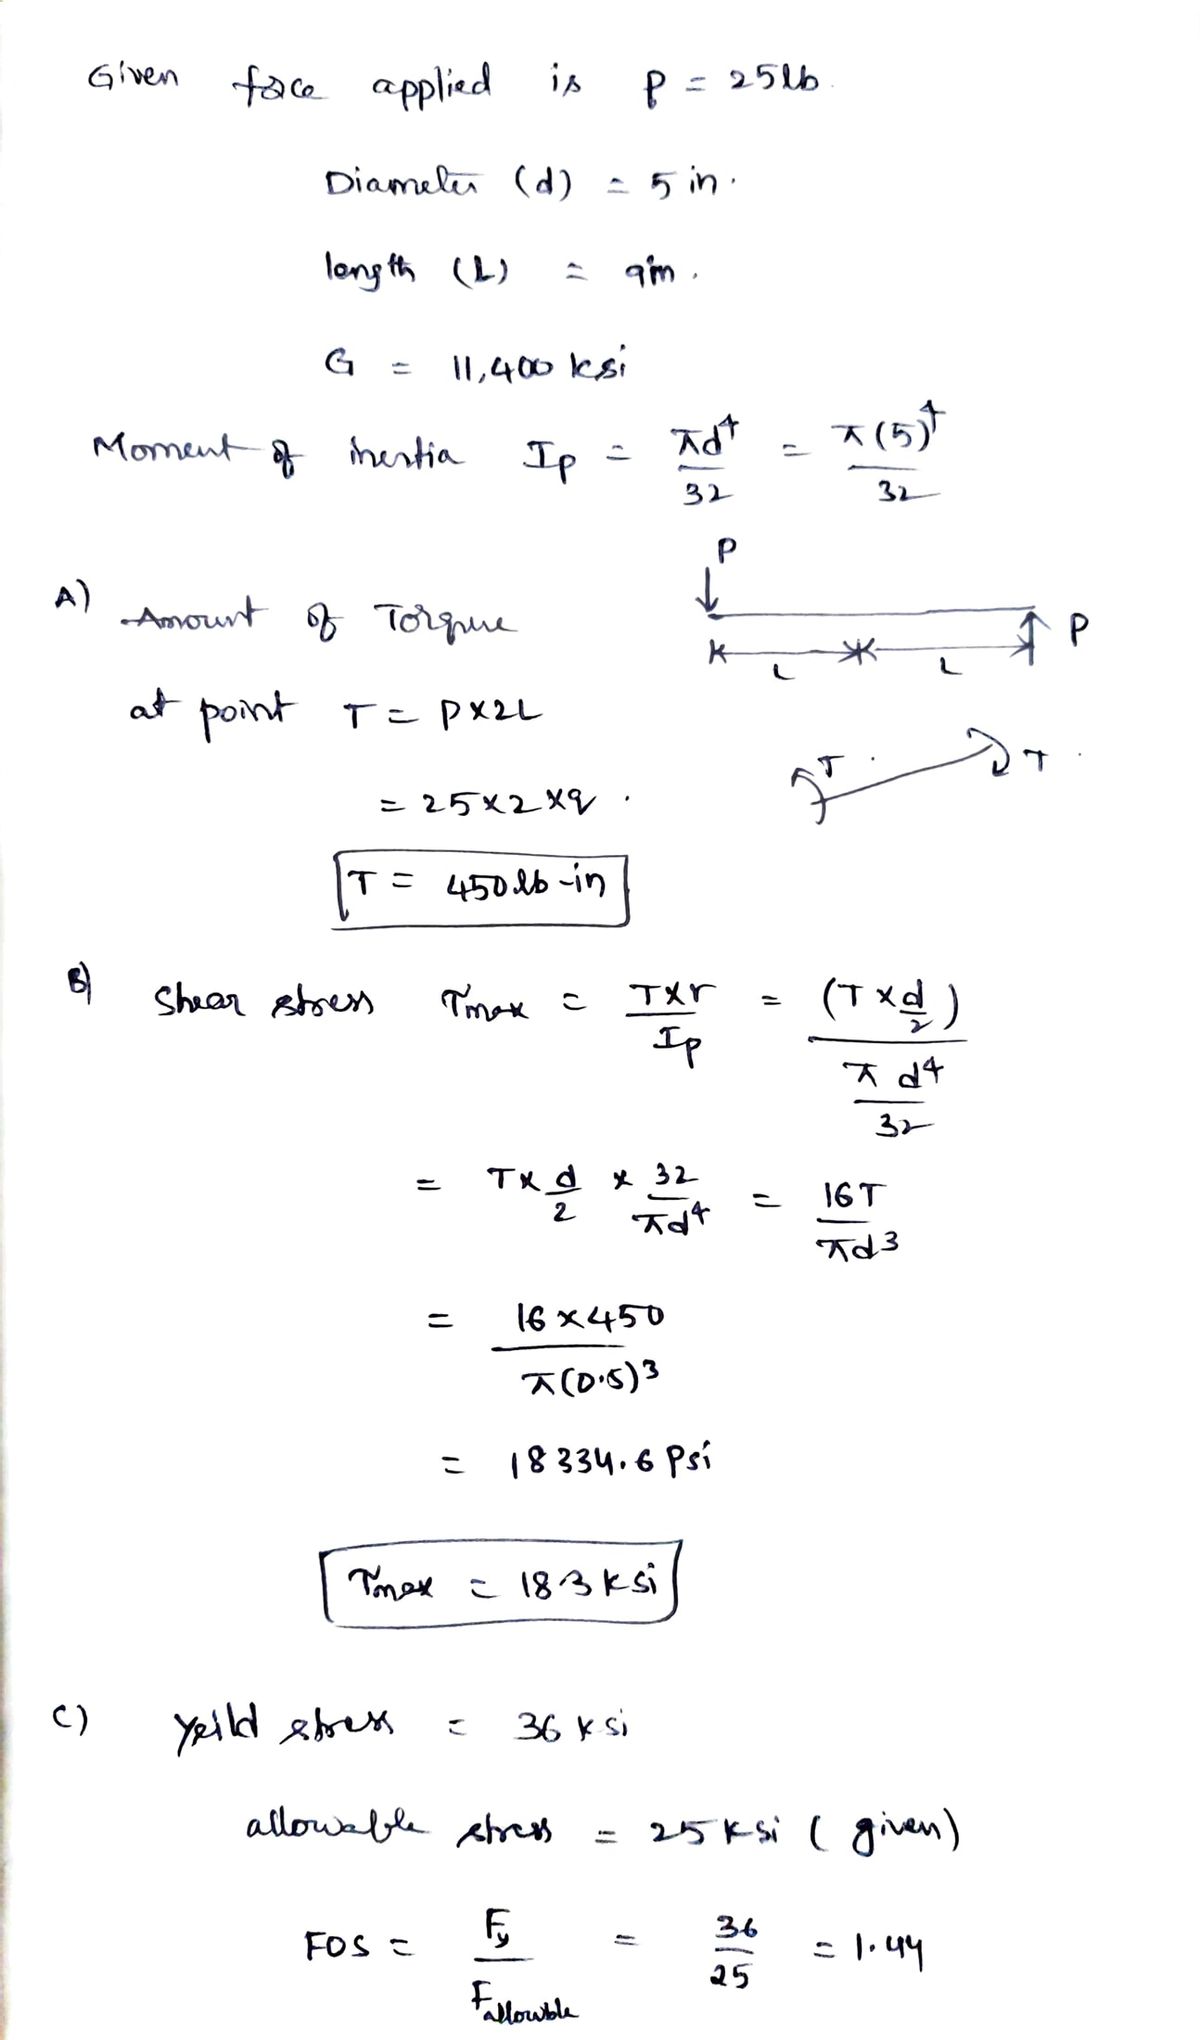 Given force applied is P = 25lb.
Diameter (d) = 5 in.
length (L) = 9in.
G = 11,400 ksi
Moment of inertia Ip = πd⁴/32 = π(5)⁴/32
P
A) Amount of Torque
P
L L
at point T = P×2L
T T
= 25×2×9
T = 450 lb-in
B) Shear stress τmax = T×r/Ip = (T×d/2)/(πd⁴/32)
= T×d/2 × 32/πd⁴ = 16T/πd³
= 16×450/π(0.5)³
= 18334.6 Psi
τmax = 18.3 ksi
C) Yeild stress = 36 ksi
allowable stress = 25 ksi (given)
FOS = Fy/Fallowable = 36/25 = 1.44